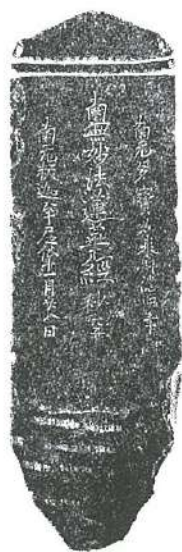 南无多寳如来
南無妙法蓮華經
南无釈迦牟尼佛十一月廿八日